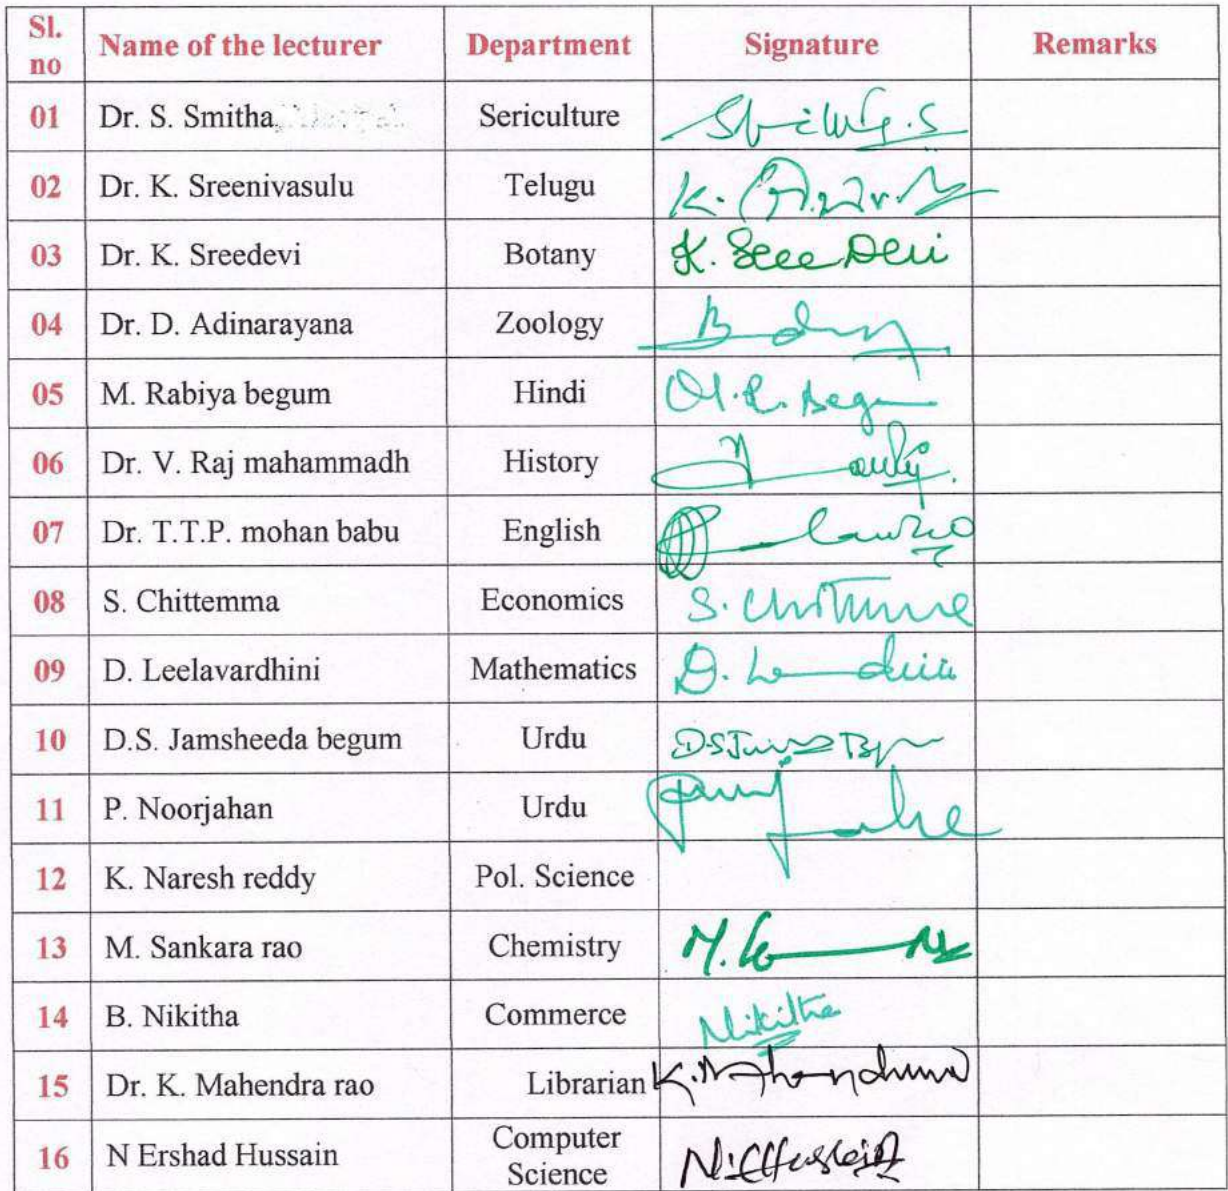 Sl. no Name of the lecturer Department Signature Remarks
01 Dr. S. Smitha Sericulture
02 Dr. K. Sreenivasulu Telugu K.
03 Dr. K. Sreedevi Botany K. Sree Devi
04 Dr. D. Adinarayana Zoology
05 M. Rabiya begum Hindi M. R. Begum
06 Dr. V. Raj mahammadh History
07 Dr. T.T.P. mohan babu English
08 S. Chittemma Economics S. Chittemma
09 D. Leelavardhini Mathematics D.
10 D.S. Jamsheeda begum Urdu D.S
11 P. Noorjahan Urdu
12 K. Naresh reddy Pol. Science
13 M. Sankara rao Chemistry M.
14 B. Nikitha Commerce Nikitha
15 Dr. K. Mahendra rao Librarian K.
16 N Ershad Hussain Computer Science